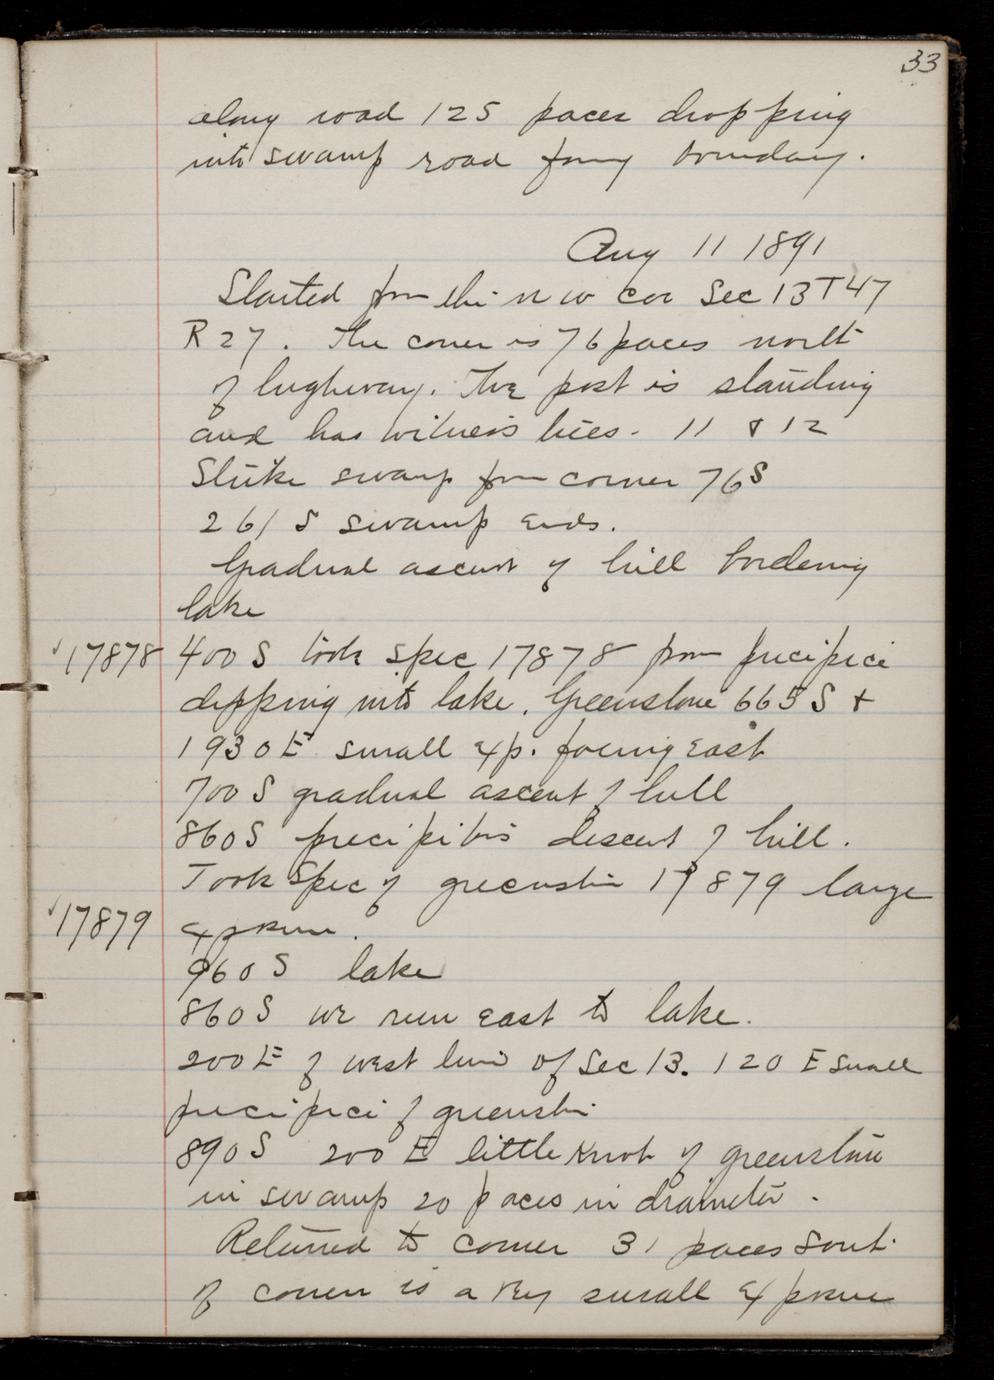 33
along road 125 paces dropping
into swamp road fomg boundary.
Aug 11 1891
Started from the N W cor Sec 13 T47
R 27. The corner is 76 paces north
of highway. The post is standing
and has witness trees. 11 & 12
Strike swamp from corner 76 S
261 S swamp ends.
Gradual ascent of hill bordering
lake
17878 400 S took spec 17878 from precipice
dipping into lake. Greenstone 665 S +
1930 E small exp. facing East
700 S gradual ascent of hill
860 S precipitous descent of hill.
Took Spec of greenstone 17879 large
17879 exposure.
960 S lake
860 S we run east to lake.
200 E of west line of Sec 13. 120 E small
precipice of greenstone
890 S 200 E little knob of greenstone
in swamp 20 paces in diameter.
Returned to corner 31 paces South
of corner is a very small exposure